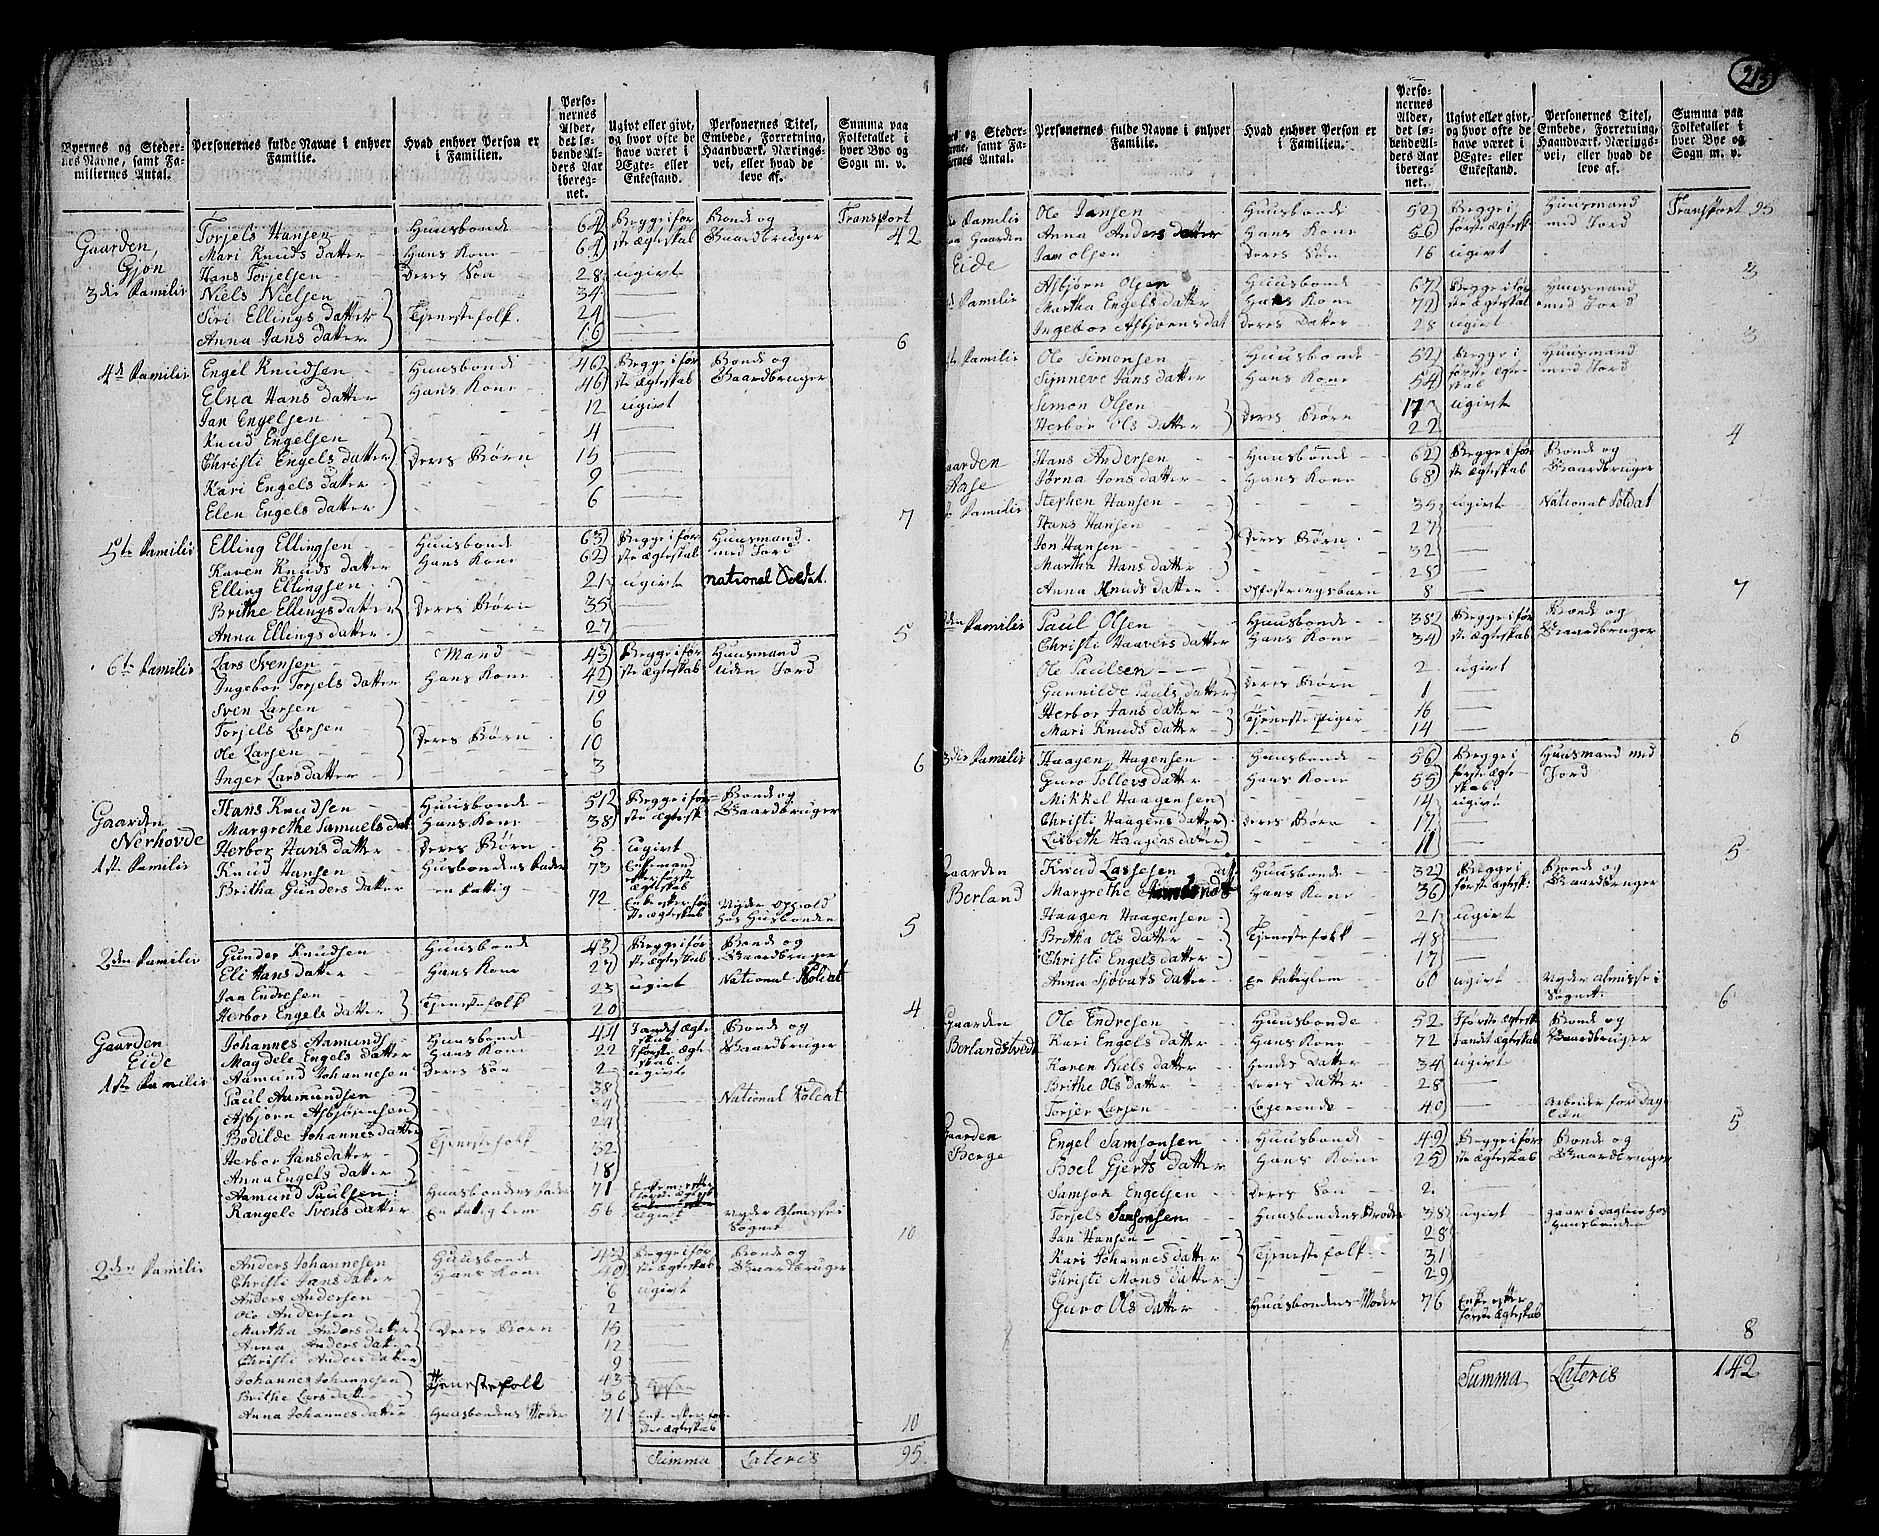 Byernes og Steder-
nes Navne, samt Fa-
miliernes Antal.
Personernes fulde Navne i enhver
Familie.
Hvad enhver Person er
i Familien.
Perso-
nernes
Alder,
det lø-
bende Al-
ders Aar
iberegnet.
Ugivt eller givt,
og hvor ofte de
have været i
Ægte- eller
Enkestand.
Personernes Titel,
Embede, Forretning,
Haandværk, Nærings-
vei, eller hvad de
leve af.
Summa paa
Folketallet i
hver Bye og
Sogn m. v.
Transport 42
Gaarden
Gjøn
3die Familie
Torjels Hansen Huusbonde 64 Begge i før- Bonde og
Mari Knuds datter Hans Kone 64 ste ægteskab Gaardbruger
Hans Torjelsen Deres Søn 28 ugivt
Niels Nielsen 34
Siri Ellings datter Tjenestefolk 24
Anna Jans datter 16
6
4de Familie
Engel Knudsen Huusbonde 46 Begge i før- Bonde og
Elna Hans datter Hans Kone 46 ste ægteskab Gaardbruger
Jan Engelsen 12 ugivt
Knud Engelsen 4
Christi Engels datter Deres Børn 15
Kari Engels datter 9
Elen Engels datter 6
7
5te Familie
Elling Ellingsen Huusbonde 63 Begge i før- Huusmand
Karen Knuds datter Hans Kone 62 ste ægteskab med Jord
Elling Ellingsen 21 ugivt national Soldat.
Brithe Ellings datter Deres Børn 35
Anna Ellings datter 27
5
6te Familie
Lars Svensen Mand 43 Begge i før- Huusmand
Ingebor Torjels datter Hans Kone 42 ste ægteskab uden Jord
Sven Larsen 19
Torjels Larsen 6
Ole Larsen Deres Børn 10
Inger Lars datter 3
6
Gaarden
Nerhovde
1ste Familie
Hans Knudsen Huusbonde 51 Begge i før- Bonde og
Margrethe Samuels dat Hans Kone 38 ste ægtesk. Gaardbruger
Herbor Hans datter Deres Børn 5 ugivt
Knud Hansen Husbondens Fader 73 Enkemand
efter første
ægteskab
Britha Gunders datter en Fattig 72 Enke efter før- Nyder Ophold
ste ægteskab hos Husbonden
5
2den Familie
Gunder Knudsen Huusbonde 43 Begge i før- Bonde og
Eli Hans datter Hans Kone 27 ste ægteskab Gaardbruger
Jan Endresen 23 ugivt National Soldat
Herbor Engels datter Tjenestefolk 20
4
Gaarden
Eide
1ste Familie
Johannes Aamunds Huusbonde 44 Bonde og
Magdele Engels datter Hans Kone 22 Gaardbruger
Aamund Johannesen Deres Søn 2 ugivt
Paul Aamundsen 38 National Soldat
Asbjørn Asbjørnsen
Bodilde Johannes datter 24
Herbor Jans datter Tjenestefolk 32
Anna Engels datter 18
Aamund Paulsen Huusbondens Fader 71
Rangele Svens datter En Fattig Lem 56 ugivt Nyder Almisse i
Sognet
10
2den Familie
Anders Johannesen Huusbonde Begge i før- Bonde og
Christi Jans datter Hans Kone 40 ste ægteskab Gaardbruger
Anders Andersen 6 ugivt
Ole Andersen 2
Martha Anders datter Deres Børn 15
Anna Anders datter 12
Christi Anders datter 9
Johannes Johannesen Tjenestefolk 43
Brithe Lars datter 36
Anna Johannes datter Huusbondens Moder 71 Enke efter før-
ste ægteskab
10
Summa Lateris 95.
213
Personernes fulde Navne i enhver
Familie.
Hvad enhver Person er
i Familien.
Perso-
nernes
Alder,
det lø-
bende Al-
ders Aar
iberegnet.
Ugivt eller givt,
og hvor ofte de
have været i
Ægte- eller
Enkestand.
Personernes Titel,
Embede, Forretning,
Haandværk, Nærings-
vei, eller hvad de
leve af.
Summa paa
Folketallet i
hver Bye og
Sogn m. v.
Transport 95
Familie
Gaarden
Eide
Ole Jansen Huusbonde 52 Begge i Huusmand
Anna Anders datter Hans Kone 56 første ægtesk. med Jord
Jan Olsen Deres Søn 16 ugivt
3
Familie
Asbjørn Olsen Huusbonde 67 Begge i før- Huusmand
Martha Engels datter Hans Kone 72 ste ægteskab med Jord
Ingebor Asbjørns dat Deres Datter 28 ugivt
3
Familie
Ole Simonsen Huusbonde 52 Begge i Huusmand
Synneve Jans datter Hans Kone 54 første ægte- med Jord
skab
Simon Olsen 17 ugivt
Herbor Ols datter Deres Børn 22
4
Gaarden
Aase
Familie
Hans Andersen Huusbonde 62 Begge i før- Bonde og
Jørna Jons datter Hans Kone 68 ste ægteskab Gaardbruger
Stephen Hansen 35 ugivt National Soldat
Hans Hansen 27
Jon Hansen Deres Børn 32
Martha Hans datter 25
Anna Knuds datter Opfostringsbarn 8
7
2den Familie
Paul Olsen Huusbonde 38 Begge i før- Bonde og
Christi Haavers datter Hans Kone 34 ste ægteskab Gaardbruger
Ole Paulsen 2 ugivt
Gunnilde Pauls datter Deres Børn 1
Herbor Jans datter Tjeneste Piger 16
Mari Knuds datter 14
6
3die Familie
Haagen Hagensen Huusbonde 56 Begge i Huusmand med
Guro Tollevs datter Hans Kone 55 første ægte- Jord
skab
Mikkel Haagensen 14 ugivt
Christi Haagens datter Deres Børn 17
Lisbeth Haagens datter 11
5
Gaarden
Berland
Knud Lassesen Huusbonde 32 Begge i Bonde og
Margrethe Hans Kone 36 første ægtesk: Gaardbruger
Haagen Haagensen 21 ugivt
Britha Ols datter Tjenestefolk 48
Christi Engels datter 17
Anna Sjovats datter En Fattiglem 60 ugivt Nyder Almisse i
Sognet
6
Gaarden
Berlandstvedt
Ole Endresen Huusbonde 52 I første ægtesk Bonde og
Kari Engels datter Hans Kone 72 I andet ægteskab Gaardbruger
Karen Niels datter Hendes Datter 34 ugivt
Brithe Ols datter Deres Datter 28
Torjer Larsen Logerende 40 Arbeider for Dag-
løn
5
Gaarden
Berge
Engel Samsonsen Huusbonde 49 Begge i før- Bonde og
Boel Gjerts datter Hans Kone 25 ste ægteskab Gaardbruger
Samson Engelsen Deres Søn 2
Torjels Samsonsen Huusbondens Broder 38 ugivt gaar i Dagleie hos
Huusbonden
Jan Hansen 28
Kari Johannes datter Tjenestefolk 31
Christi Mons datter 29
Guro Ols datter Huusbondens Moder 76 Enke efter
første ægteskab
8
Summa Lateris 142